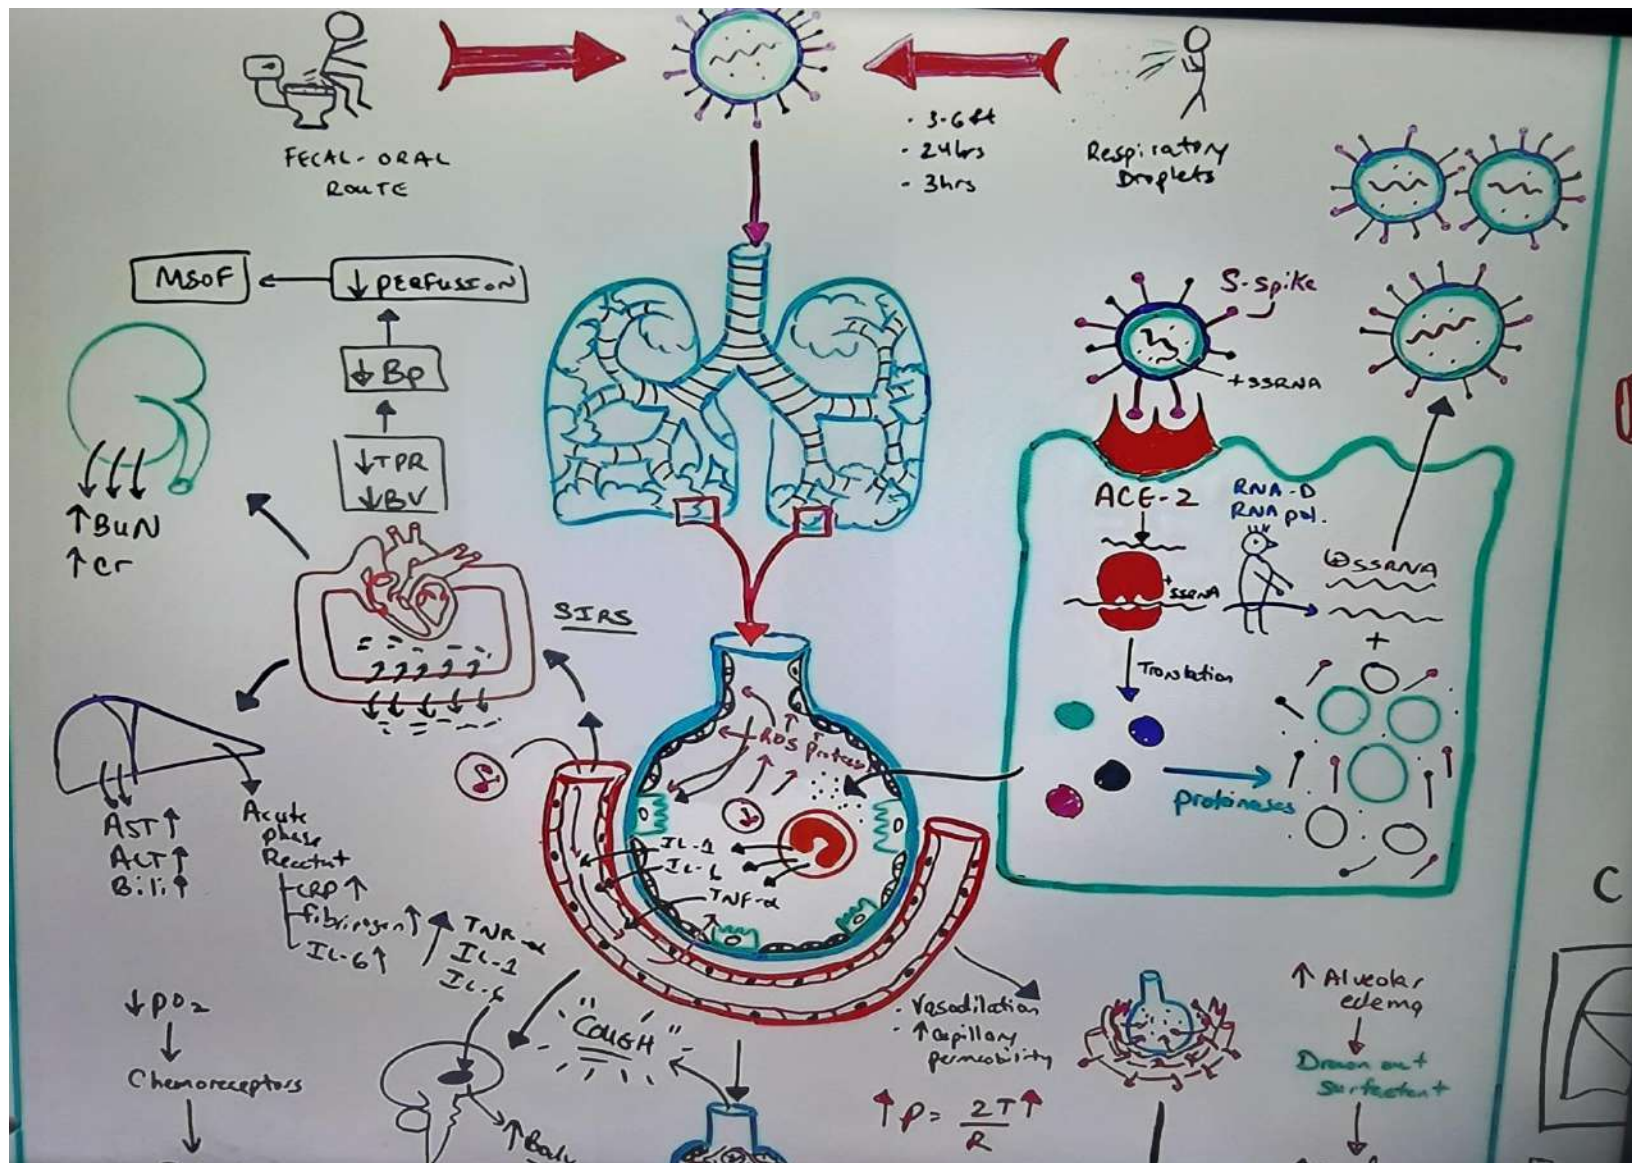 FECAL-ORAL
ROUTE
· 3-6 ft
· 24hrs
· 3hrs
Respiratory
Droplets
MSOF
↓ PERFUSION
↓ Bp
↓ TPR
↓ BV
↑ BUN
↑ Cr
SIRS
S-spike
+ssRNA
ACE-2
RNA-D
RNA pol.
+
ssRNA
⊕ssRNA
+
Translation
proteinases
ROS
IL-1
IL-6
TNF-α
AST ↑
ALT ↑
Bili ↑
Acute
phase
CRP ↑
fibrinogen ↑
IL-6 ↑
IL-1
IL-6
↓ PO₂
Chemoreceptors
"COUGH"
↑ Body
· Vasodilation
· ↑ Capillary
permeability
↑ P = 2T ↑
R
↑ Alveolar
edema
Drown out
Surfactant
C